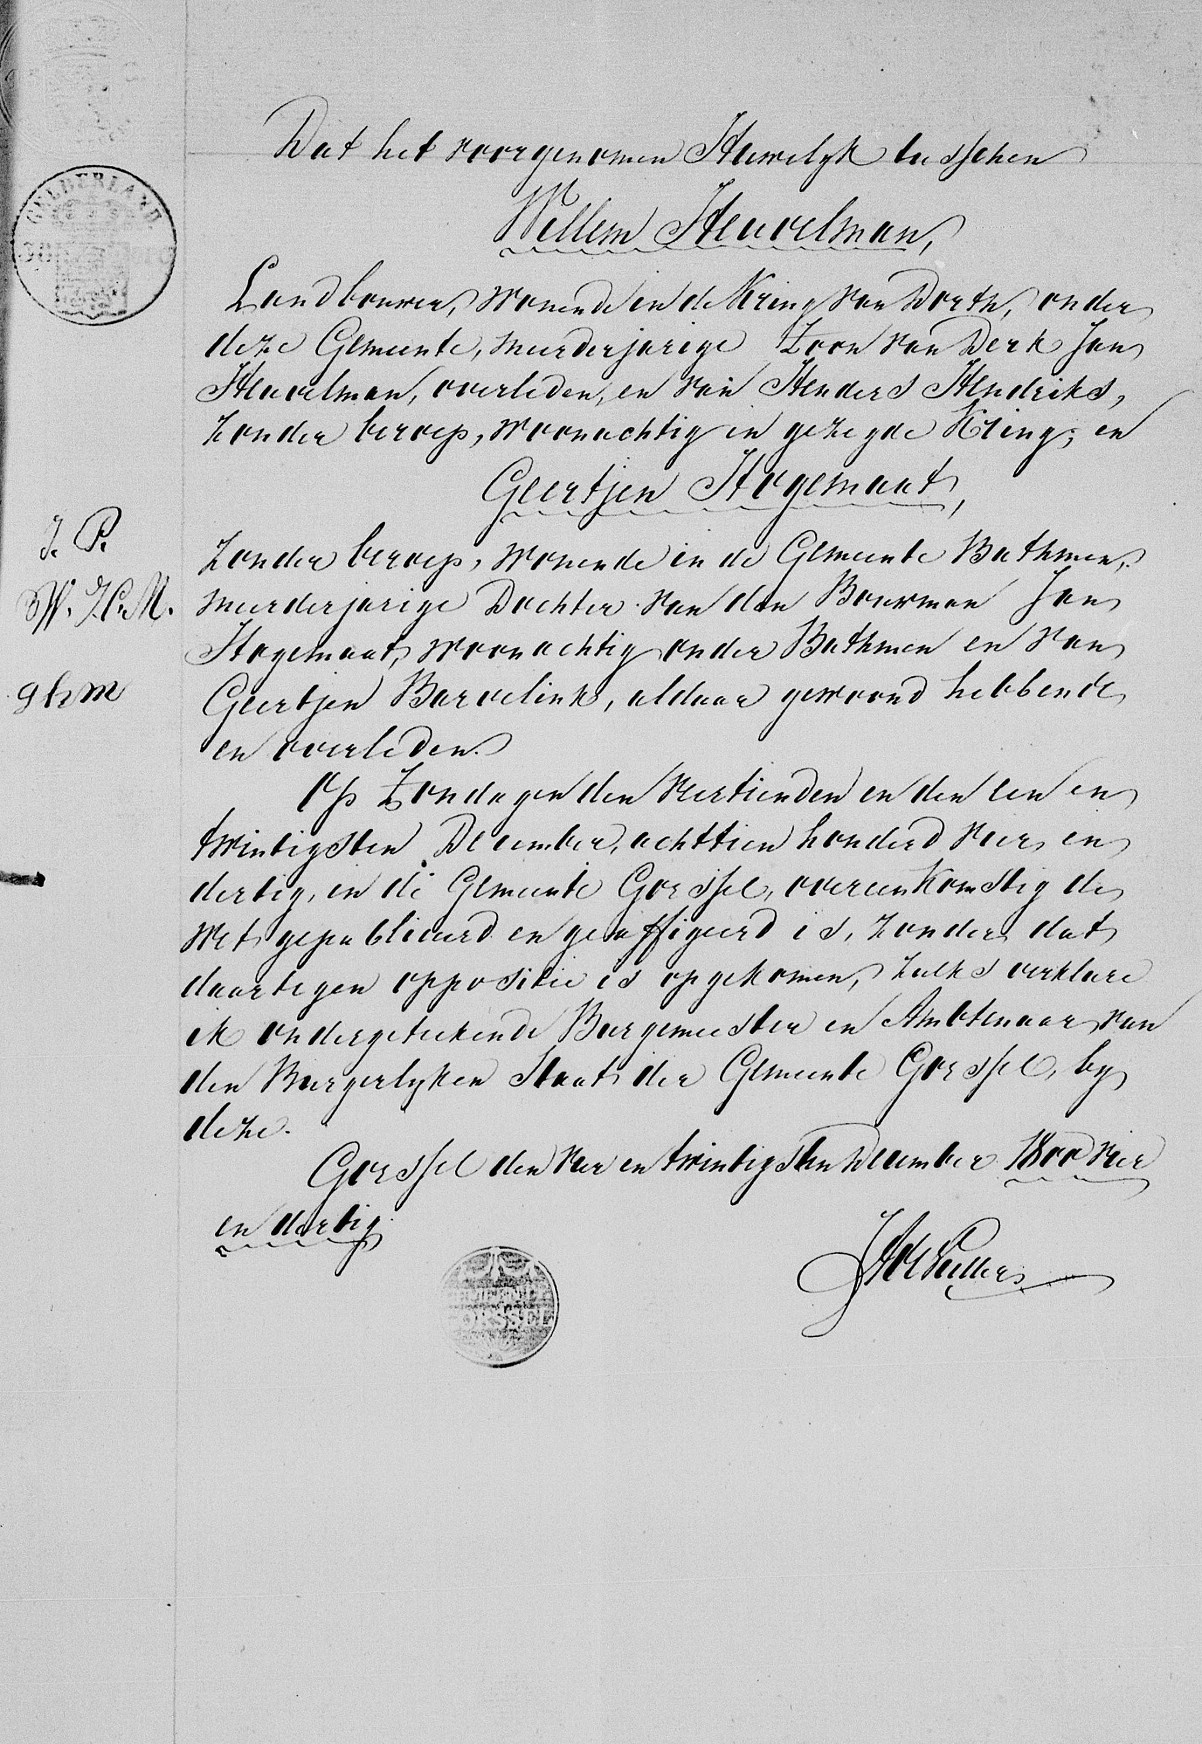 GELDERLAND
Dat het voorgenomen Huwelyk tusschen
Willem Heuvelman,
Landbouwer, wonende in de Kring van Dorth, onder
deze Gemeente, meerderjarige Zoon van Derk Jan
Heuvelman, overleden, en van Henders Hendriks,
zonder beroep, woonachtig in gezegde Kring; en
Geertjen Hogemaat,
J. P.
zonder beroep, wonende in de Gemeente Bathmen,
W. H. M.
meerderjarige Dochter van den Bouwman Jan
Hogemaat, woonachtig onder Bathmen en van
g h m
Geertjen Barvelink, aldaar gewoond hebbende
en overleden.
Op Zondagen den veertienden en den een en
twintigsten December, achttien honderd vier en
dertig, in de Gemeente Gorssel, overeenkomstig de
Wet gepubliceerd en geaffigeerd is, zonder dat
daartegen oppositie is opgekomen, zulks verklare
ik ondergeteekende Burgemeester en Ambtenaar van
den Burgerlyken Staat der Gemeente Gorssel, by
deze.
Gorssel den vier en twintigsten December 1800 vier
en dertig.
GORSSEL